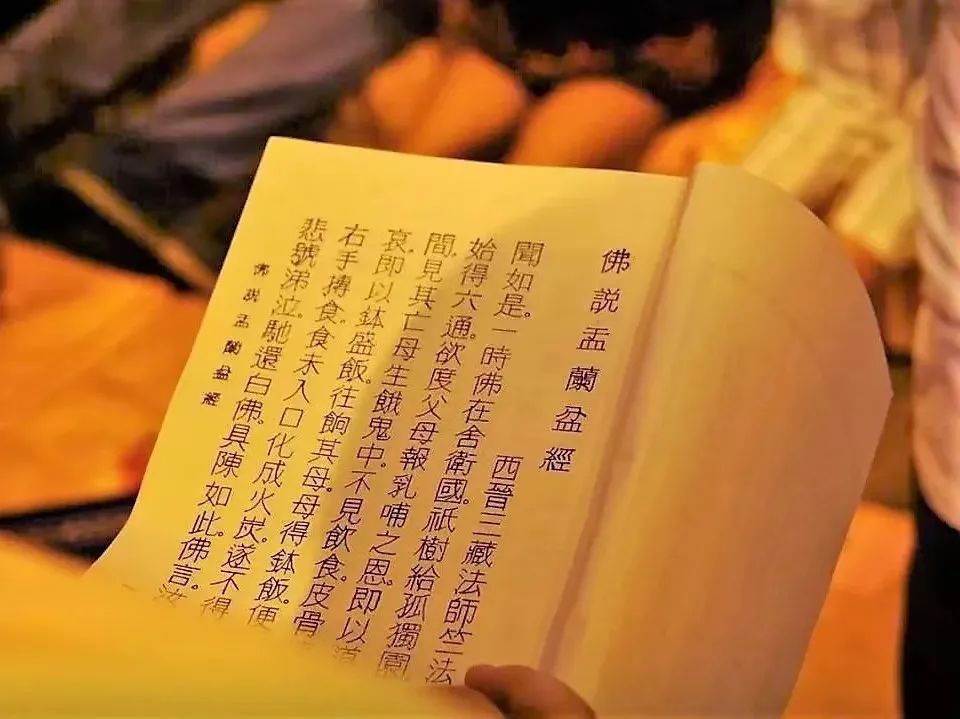 佛説盂蘭盆經
西晉三藏法師竺法
聞如是。一時佛在舍衛國。祇樹給孤獨園
始得六通。欲度父母報乳哺之恩。即以道
間。見其亡母生餓鬼中。不見飲食。皮骨
哀。即以鉢盛飯。往餉其母。母得鉢飯。便
右手摶食。食未入口化成火炭。遂不得
悲號涕泣。馳還白佛。具陳如此。佛言。汝
佛説盂蘭盆經